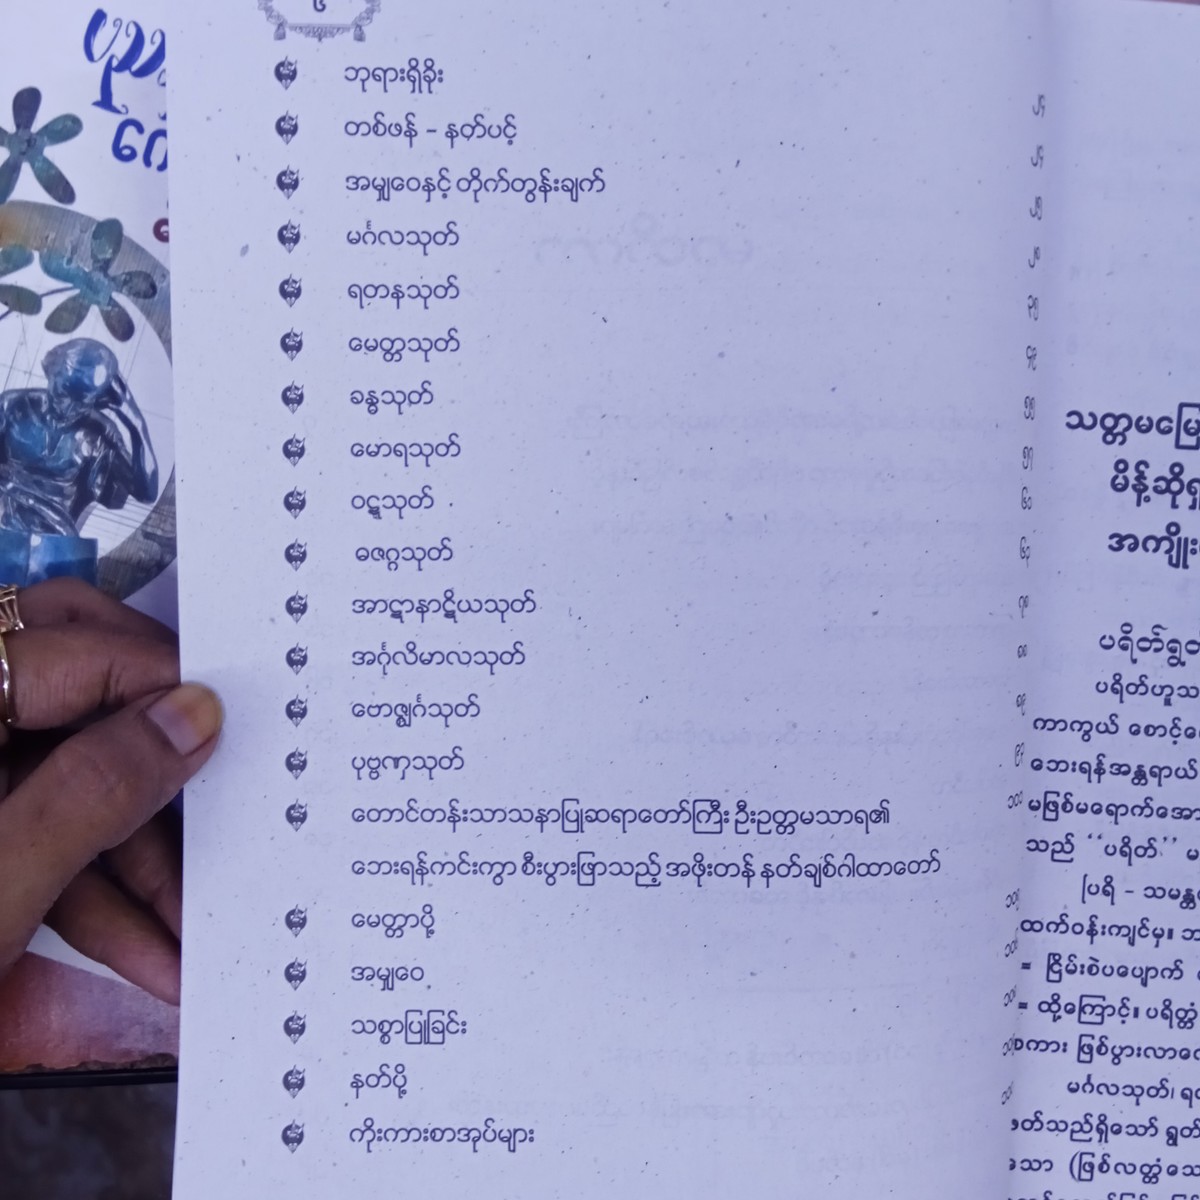 ၆
ဘုရားရှိခိုး ၂၄
တစ်ဖန် – နတ်ပင့် ၂၄
အမျှဝေနှင့် တိုက်တွန်းချက် ၂၅
မင်္ဂလသုတ်
ရတနသုတ် ၃၅
မေတ္တသုတ် ၄၉
ခန္ဓသုတ် ၅၅
မောရသုတ် ၅၇
ဝဋ္ဋသုတ် ၆၁
ဓဇဂ္ဂသုတ် ၆၃
အာဋာနာဋိယသုတ်
အင်္ဂုလိမာလသုတ်
ဗောဇ္ဈင်္ဂသုတ် ၈၉
ပုဗ္ဗဏှသုတ်
တောင်တန်းသာသနာပြုဆရာတော်ကြီး ဦးဥတ္တမသာရ၏
ဘေးရန်ကင်းကွာ စီးပွားဖြာသည့် အဖိုးတန် နတ်ချစ်ဂါထာတော်
မေတ္တာပို့
အမျှဝေ
သစ္စာပြုခြင်း
နတ်ပို့
ကိုးကားစာအုပ်များ
သတ္တမမြေ
မိန့်ဆို
အကျိုး
ပရိတ်ရွတ
ပရိတ်ဟူသ
ကာကွယ် စောင့်
ဘေးရန်အန္တရာယ်
မဖြစ်မရောက်အော
သည် “ပရိတ်” မ
[ပရိ – သမန္တ
ထက်ဝန်းကျင်မှ။ ဘ
= ငြိမ်းစဲပပျောက်
= ထို့ကြောင့်။ ပရိတ္တံ
စကား ဖြစ်ပွားလာ
မင်္ဂလသုတ်၊ ရ
ဖတ်သည်ရှိသော် ရွတ်
သော (ဖြစ်လတ္တံ့သေ